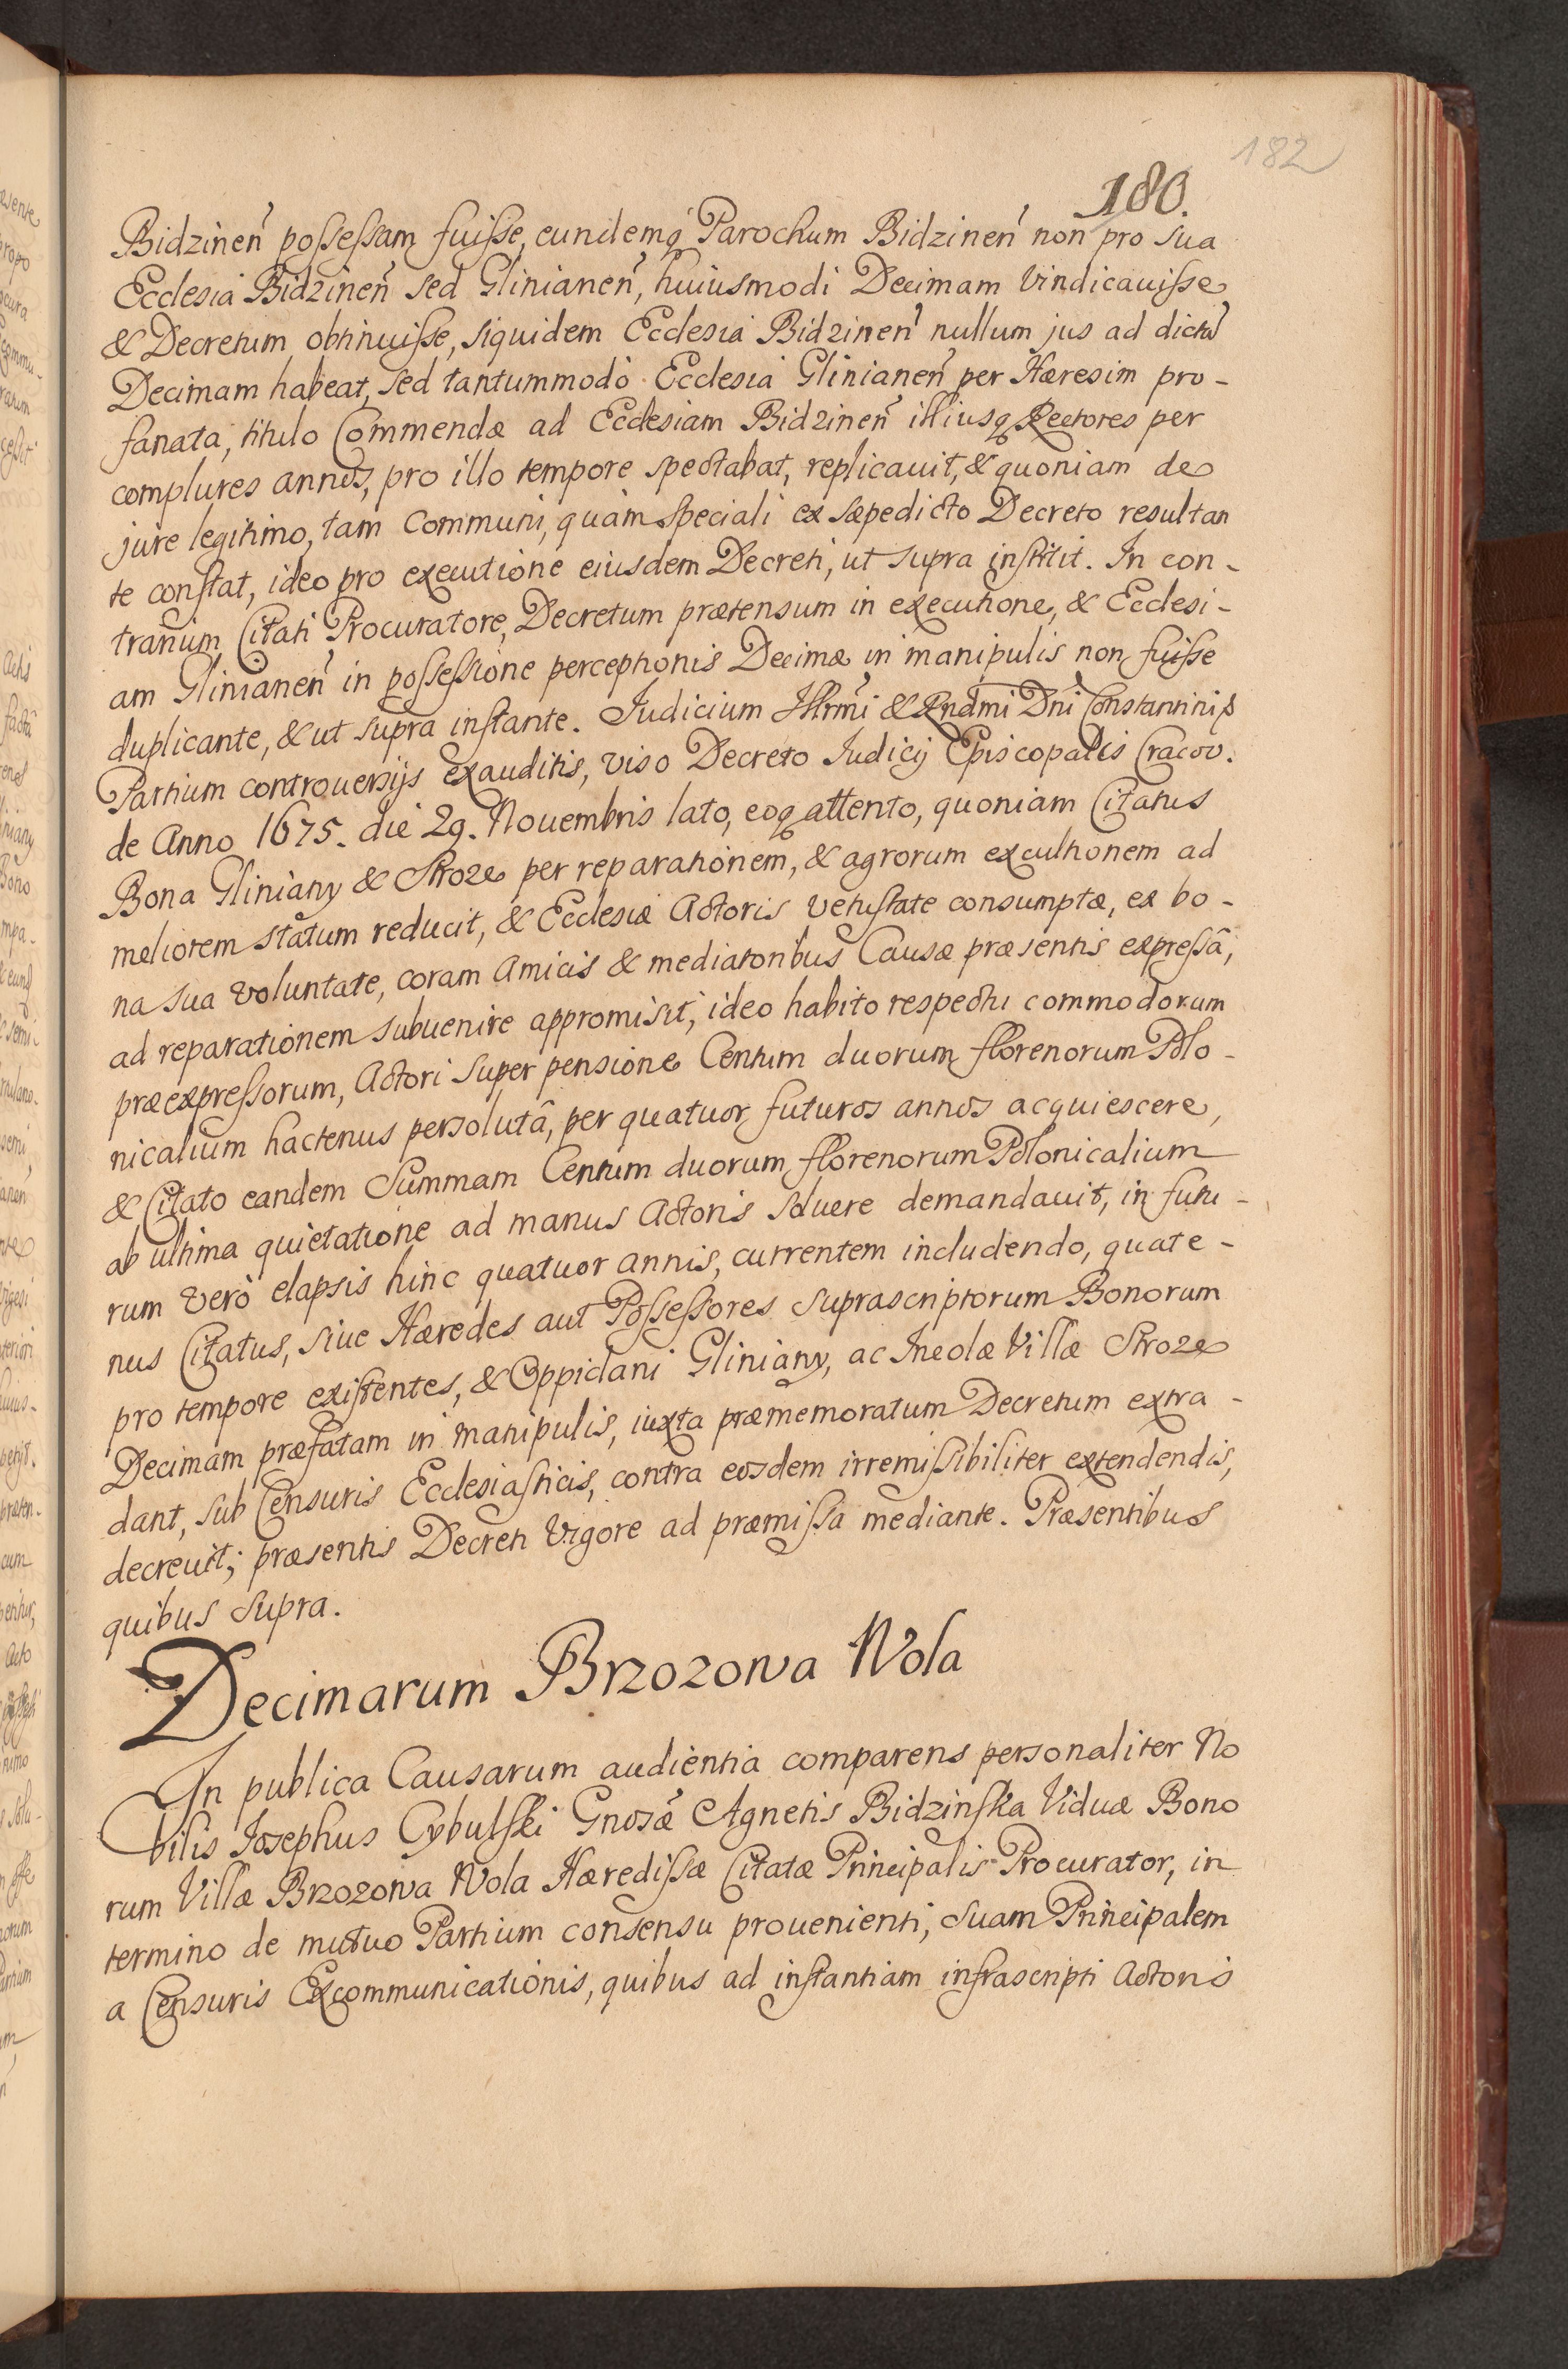 182
180.
Bidzinen̄ possessam fuisse, eundemq́ Parochum Bidzinen̄ non pro sua
Ecclesia Bidzinen̄ sed Glinianen̄, huiusmodi Decimam vindicauisse
& Decretum obtinuisse, siquidem Ecclesia Bidzinen̄ nullum jus ad dictā
Decimam habeat, sed tantummodò Ecclesia Glinianen̄ per Hæresim pro-
fanata, titulo Commendæ ad Ecclesiam Bidzinen̄ illiusq Rectores per
complures annos, pro illo tempore spectabat, replicauit, & quoniam de
jure legitimo, tam Communi, quàm speciali ex sæpedicto Decreto resultan
te constat, ideo pro executione eiusdem Decreti, ut supra institit. In con-
trarium Citati Procuratore, Decretum prætensum in executione, & Ecclesi-
am Glinianen̄ in possessione perceptionis Decimæ in manipulis non fuisse
duplicante, & ut supra instante. Judicium Illrm̄i & Rndm̄i Dn̄i Constantinis
Partium controuersijs exauditis, viso Decreto Judicij Episcopalis Cracov.
de Anno 1675. die 29. Nouembris lato, eoq attento, quoniam Citatus
Bona Gliniany & Stroze per reparationem, & agrorum excultionem ad
meliorem statum reducit, & Ecclesiæ Actoris vetustate consumptæ, ex bo-
na sua voluntate, coram Amicis & mediatoribus Causæ præsentis expressâ,
ad reparationem subuenire appromisit, ideo habito respectu commodorum
præexpressorum, Actori super pensione Centum duorum florenorum Polo-
nicalium hactenus persolutâ, per quatuor futuros annos acquiescere,
& Citato eandem Summam Centum duorum florenorum Polonicalium
ab ultima quietatione ad manus Actoris soluere demandauit, in futu-
rum verò elapsis hinc quatuor annis, currentem includendo, quate-
nus Citatus, siue Hæredes aut Possessores suprascriptorum Bonorum
pro tempore existentes, & Oppidani Gliniany, ac Incolæ Villæ Stroze
Decimam præfatam in manipulis, iuxta præmemoratum Decretum extra-
dant, sub Censuris Ecclesiasticis, contra eosdem irremissibiliter extendendis,
decreuit; præsentis Decreti vigore ad præmissa mediante. Præsentibus
quibus supra.
Decimarum Brzozowa Wola
In publica Causarum audientia comparens personaliter No
bilis Josephus Cybulski Gnosǣ Agnetis Bidzinska Viduæ Bono
rum Villæ Brzozowa Wola Hæredissæ Citatæ Principalis Procurator, in
termino de mutuo Partium consensu prouenienti, suam Principalem
a Censuris Excommunicationis, quibus ad instantiam infrascripti Actoris